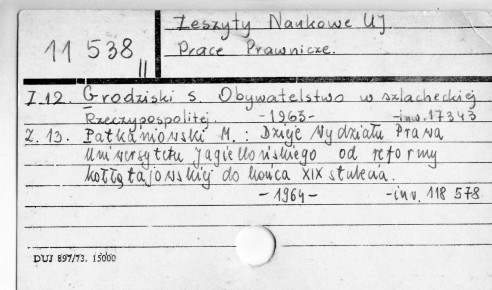 Zeszyty Naukowe UJ.
11 538 II
Prace Prawnicze.
Z.12. Grodziski S. Obywatelstwo w szlacheckiej
Rzeczypospolitej. - 1963 - - inw. 17343
Z. 13. Patkaniowski M. : Dzieje Wydziału Prawa
Uniwersytetu Jagiellońskiego od reformy
kołłątajowskiej do końca XIX stulecia.
- 1964 - - inv. 118 578
DUJ 897/73. 15000